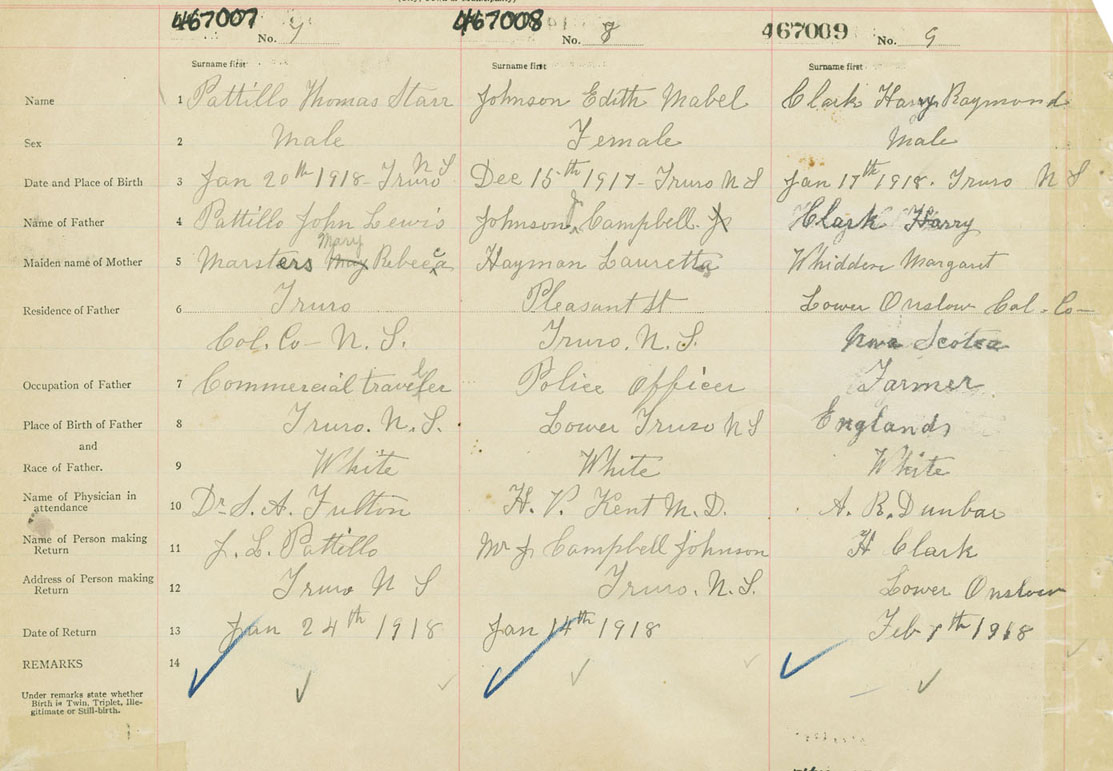 467007 467008 467009
No. 7 No. 8 No. 9
Surname first Surname first Surname first
Name 1 Pattillo Thomas Starr Johnson Edith Mabel Clark Harry Raymond
Sex 2 Male Female Male
Date and Place of Birth 3 Jan 20th 1918 - Truro N S Dec 15th 1917 - Truro N S Jan 17th 1918. Truro N S
Name of Father 4 Pattillo John Lewis Johnson J Campbell Clark Harry
Maiden name of Mother 5 Marsters Mary Rebecca Hayman Lauretta Whidden Margaret
Residence of Father 6 Truro Pleasant St Lower Onslow Col. Co-
Col. Co - N. S. Truro. N. S. Nova Scotea
Occupation of Father 7 Commercial traveller Police Officer Farmer
Place of Birth of Father 8 Truro. N. S. Lower Truro N S England
and
Race of Father. 9 White White White
Name of Physician in attendance 10 Dr S. A. Fulton H. V. Kent M. D. A. R. Dunbar
Name of Person making Return 11 J. L. Pattillo Mr J Campbell Johnson H Clark
Address of Person making Return 12 Truro N S Truro. N. S. Lower Onslow
Date of Return 13 Jan 24th 1918 Jan 14th 1918 Feb 1918
REMARKS 14
Under remarks state whether
Birth is Twin, Triplet, Ille-
gitimate or Still-birth.